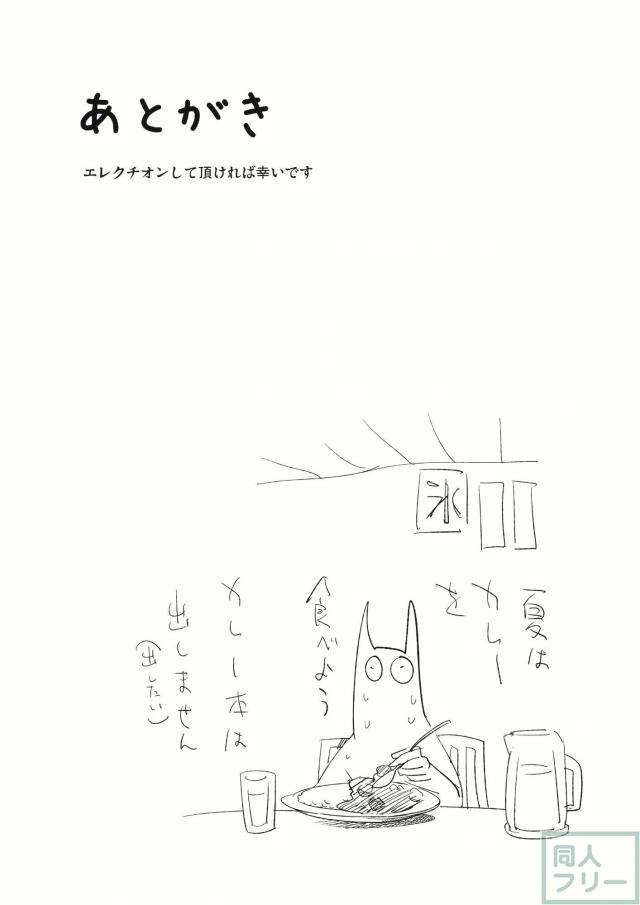 あとがき
エレクチオンして頂ければ幸いです
氷
夏は
カレー
を
食べよう
カレー本は
出しません
（出したい）
同人
フリー